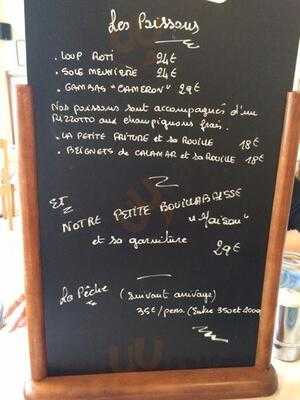 Les Poissons
. LOUP ROTI 24€
. SOLE MEUNIÈRE 24€
. GAMBAS "CAMERON" 29€
Nos poissons sont accompagnés d'un
RIZZOTO aux champignons frais.
. LA PETITE FRITURE et sa ROUILLE 18€
. BEIGNETS de CALAMAR et sa ROUILLE 18€
ET
NOTRE PETITE BOUILLABAISSE
"Maison"
et sa garniture 29€
La Pêche (Suivant arrivage)
35€/pers. (Entre 350 et 400g)